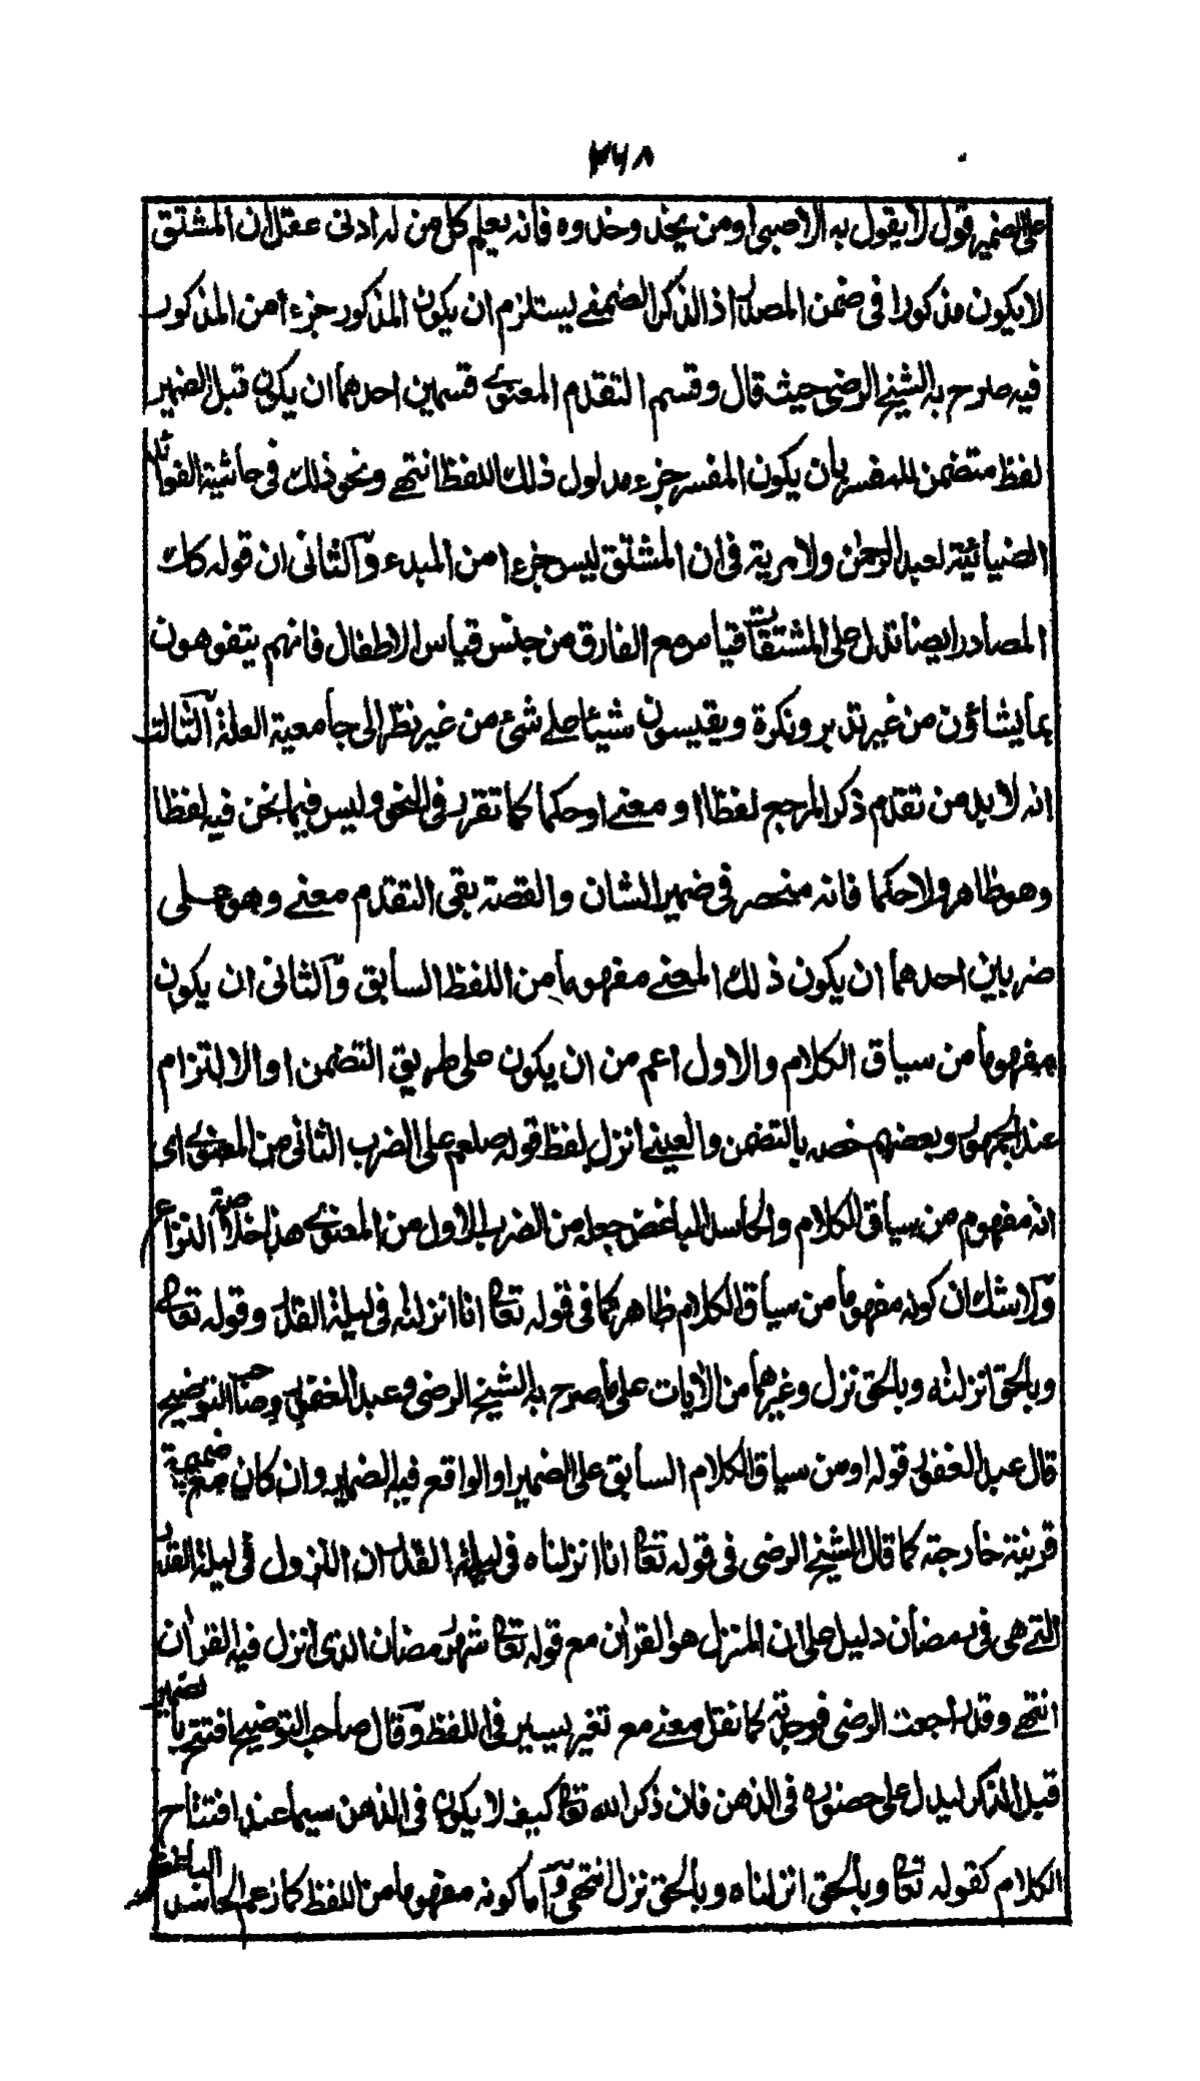 ۲۶۸
على الضمير قول لا يقول به الا صبى او من يحذ وحذوه فانه يعلم كل من له ادنى عقل ان المشتق
لا يكون مذكورا فى ضمن المصدر اذ الذكر الضمنے يستلزم ان يكون المذكور جزءا من المذكور
فيه صرح به الشيخ الرضى حيث قال وقسم التقدم المعنوے قسمين احدهما ان يكون قبل الضمير
لفظ متضمن للمفسر بان يكون المفسر جزء مدلول ذلك اللفظ انتهے ونحو ذلك فى حاشية الفوائد
الضيائية لعبد الرحمٰن ولا مرية فى ان المشتق ليس جزءا من المبدء والثانى ان قوله كاك
المصادر ايضا تدل على المشتقات قياس مع الفارق من جنس قياس الاطفال فانهم يتفوهون
بما يشاؤن من غير تدبر ونكرة ويقيسون شيئا علے شئ من غير نظر الى جامعية العلة الثالث
انه لا بد من تقدم ذكر المرجع لفظا او معنے او حكما كما تقرر فى النحو وليس فيما نحن فيه لفظا
وهو ظاهر ولا حكما فانه منحصر فى ضمير الشان والقصة بقى التقدم معنے وهو على
ضربين احدهما ان يكون ذلك المعنے مفهوما من اللفظ السابق والثانى ان يكون
مفهوما من سياق الكلام والاول اعم من ان يكون على طريق التضمن او الالتزام
عند الجمهور وبعضهم خصه بالتضمن والعينے انزل لفظ قوله صلعم على الضرب الثانى من المعنوى اى
انه مفهوم من سياق الكلام والحاسد الباغض جعله من الضرب الاول من المعنوے هذا خلاصة النزاع
ولا شك ان كونه مفهوما من سياق الكلام ظاهر كما فى قوله تعا انا انزلنٰه فى ليلة القدر وقوله تعالے
وبالحق انزلنٰه وبالحق نزل وغيرهما من الاٰيات على ما صرح به الشيخ الرضى وعبد الغفور وصاحب التوضيح
قال عبد الغفور قوله او من سياق الكلام السابق على الضمير او الواقع فيه الضمير وان كان مع ضميمة
قرينة خارجة كما قال الشيخ الرضى فى قوله تعا انا انزلناه فى ليلة القدر ان النزول فى ليلة القدر
التے هى فى رمضان دليل على ان المنزل هو القراٰن مع قوله تعا شهر رمضان الذى انزل فيه القراٰن
انتهے وقد راجعت الرضى فوجدته كما نقل معنے مع تغير يسير فى اللفظ وقال صاحب التوضيح افتتح بالضمير
قبل الذكر ليدل على حضوره فى الذهن فان ذكر الله تعا كيف لا يكون فى الذهن سيما عند افتتاح
الكلام كقوله تعا وبالحق انزلناه وبالحق نزل انتهى واما كونه مفهوما من اللفظ كما زعم الحاسد الباغض